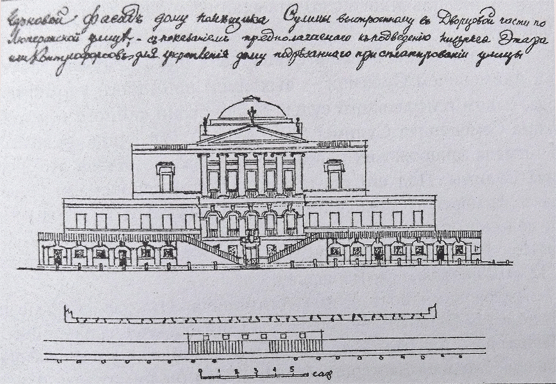 фасадъ дому помѣщика Сулимы выстроенному въ Дворцовой части по
улицѣ, - съ показаніемъ предполагаемаго къ подведенію нижняго Этажа
или Контрафорсовъ для укрепленія дому подрезанного при спланированіи улицы
0 1 2 3 4 5 саж